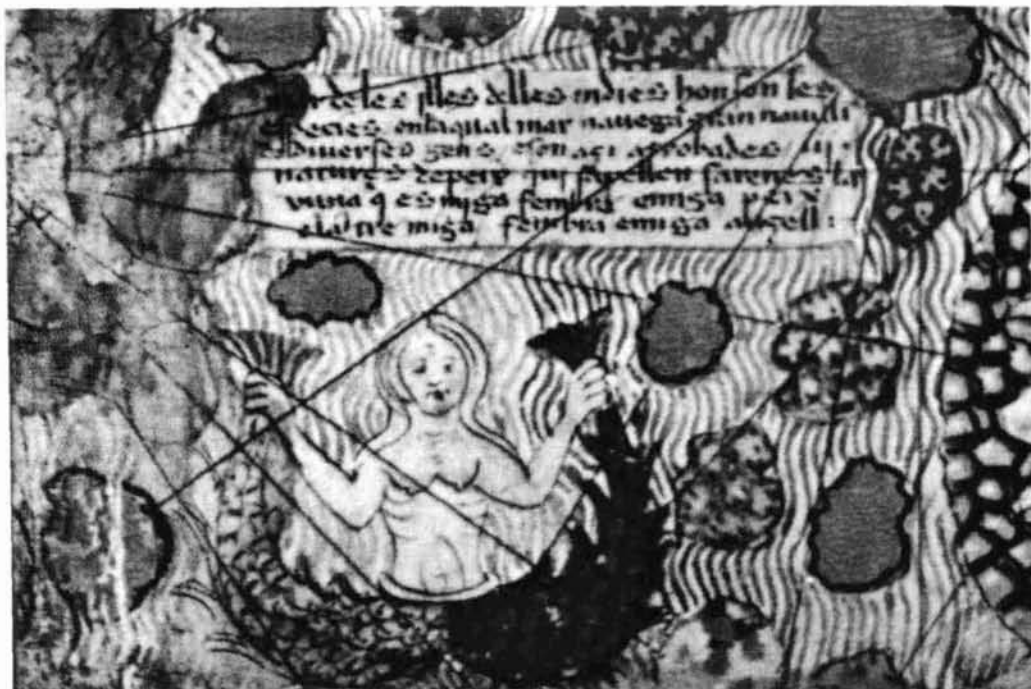 deles jlles delles indies hon son les
especies enlaqual mar nauega gran nauili
diuerses gens eson açi atrobades
natures depeix qui sapellen sarenes la
vuna q es miga fembra emiga peix
elaltre miga fembra emiga aucell: